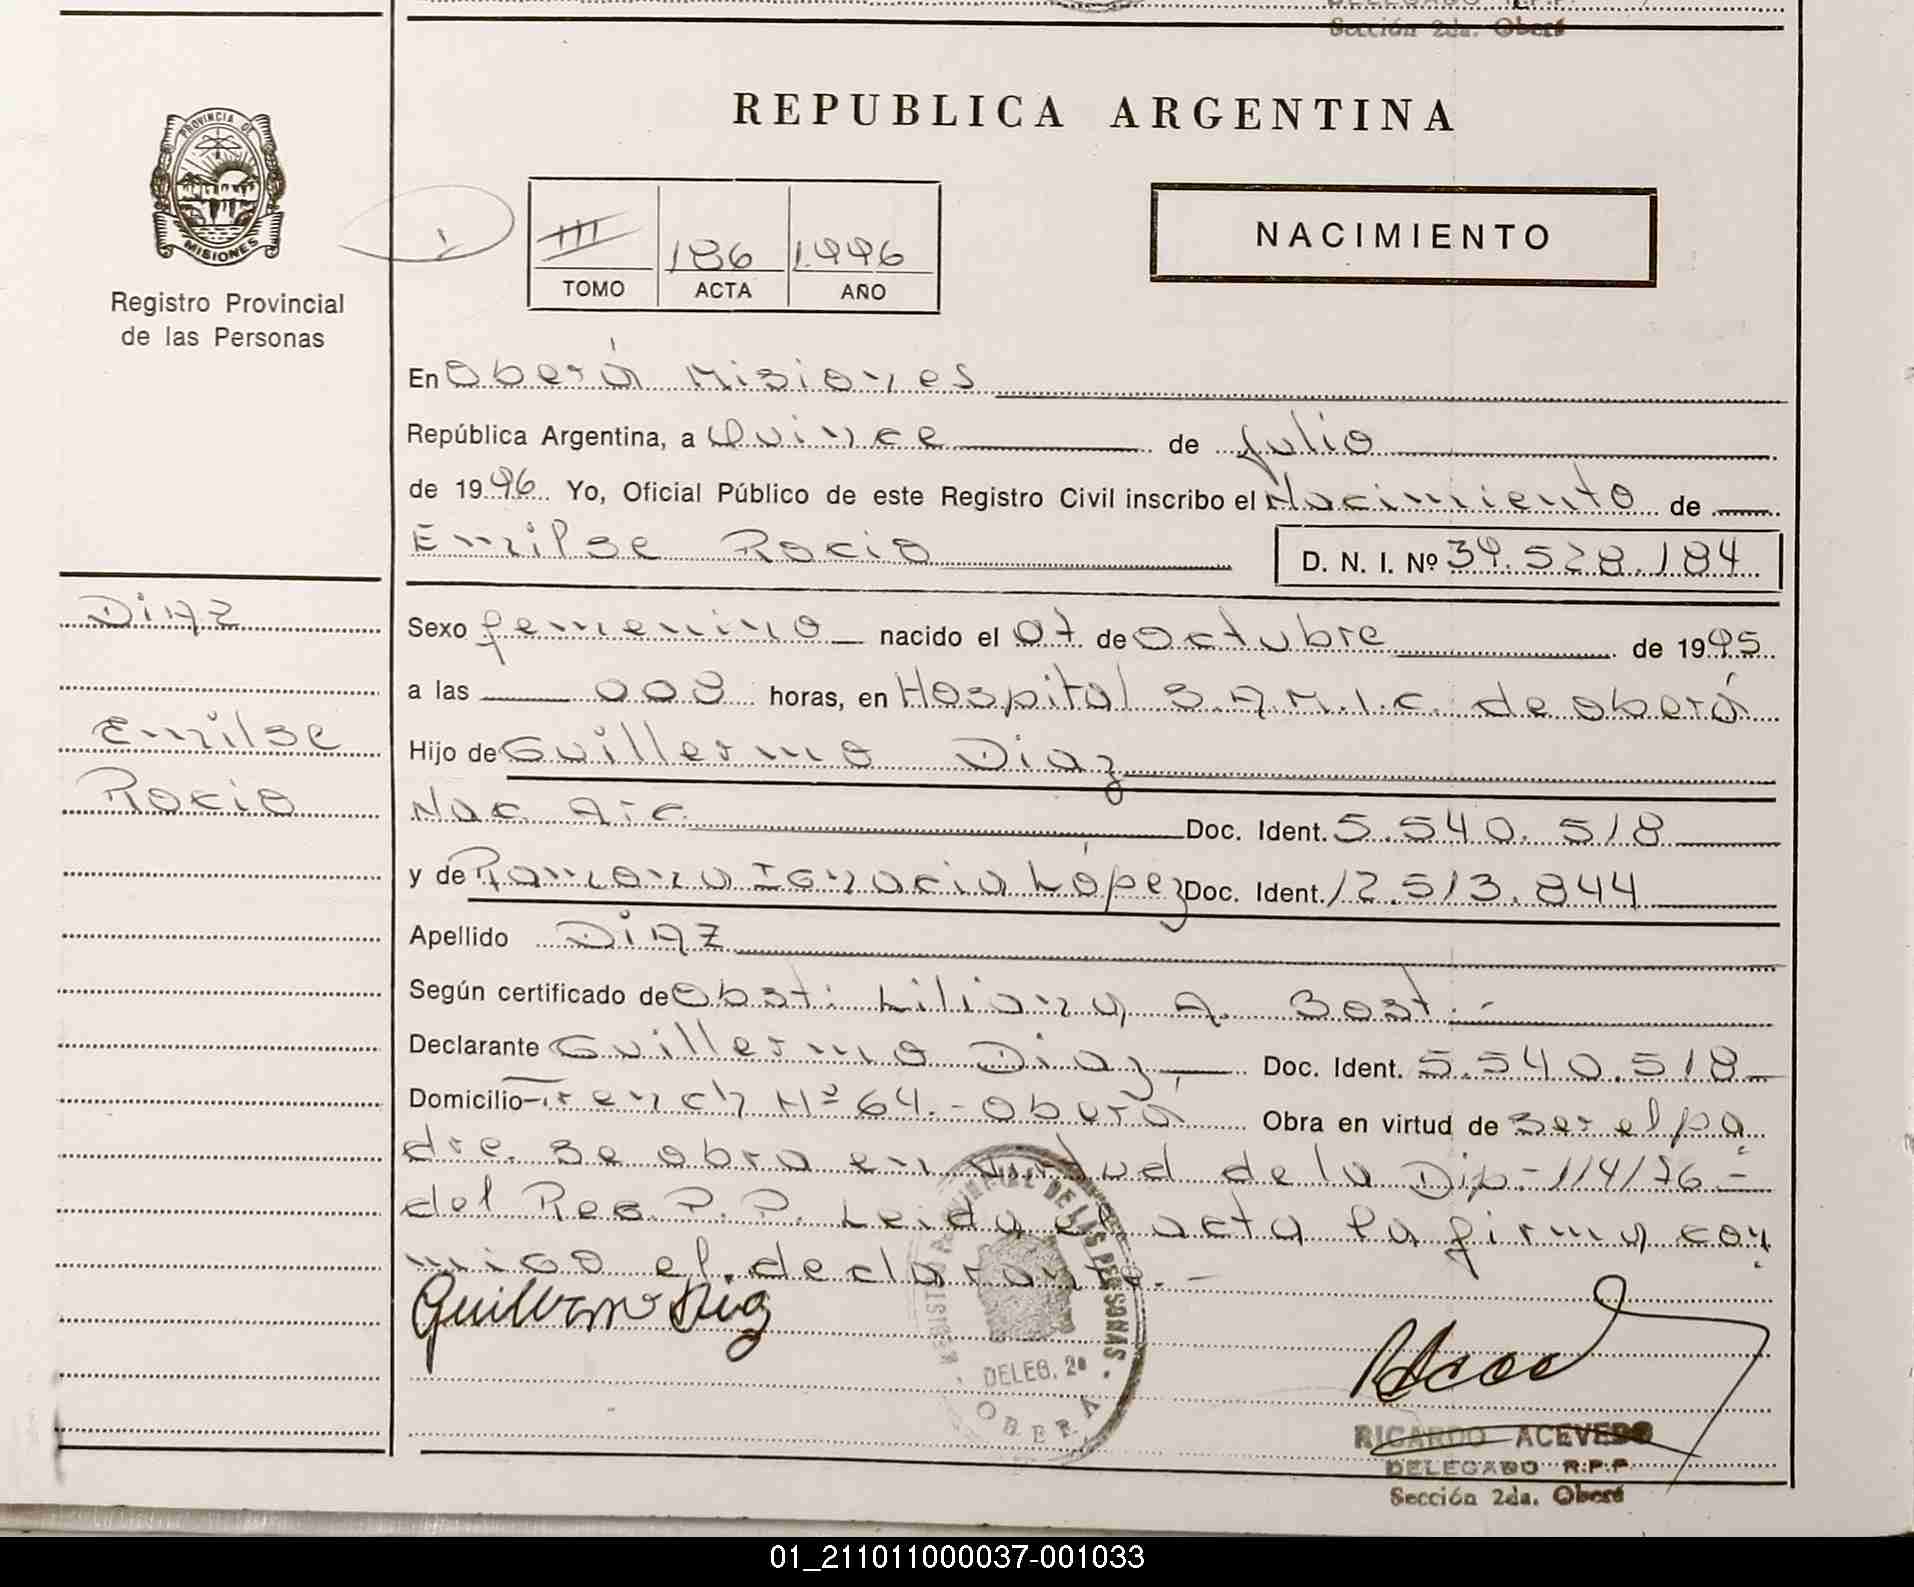 Sección 2da. Oberá
PROVINCIA DE
MISIONES
Registro Provincial
de las Personas
REPUBLICA ARGENTINA
III 186 1.996
TOMO ACTA AÑO
NACIMIENTO
En Oberá Misiones
República Argentina, a Quince de Julio
de 1996. Yo, Oficial Público de este Registro Civil inscribo el Nacimiento de
Emilse Rocio D. N. I. Nº 39.528.184
Diaz
Emilse
Rocio
Sexo femenino nacido el 07 de Octubre de 1995
a las 003 horas, en Hospital S.A.M.I.C. de oberá
Hijo de Guillermo Diaz
Nac. Arg. Doc. Ident. 5.540.518
y de Ramona Ignacia López Doc. Ident. 12.513.844
Apellido DiAZ
Según certificado de Obst: Liliana A. Bost.-
Declarante Guillermo Diaz Doc. Ident. 5.540.518
Domicilio French Nº 64.- Oberá Obra en virtud de ser el pa
dre. Se obra en virtud de la Dip-114/76-
del Reg. P. P. Leida el acta la firma con
migo el declarante.-
Guillermo Diaz
REGISTRO PROVINCIAL DE LAS PERSONAS
DELEG. 2ª
OBERA
RICARDO ACEVEDO
DELEGADO R.P.P.
Sección 2da. Oberá
01_211011000037-001033